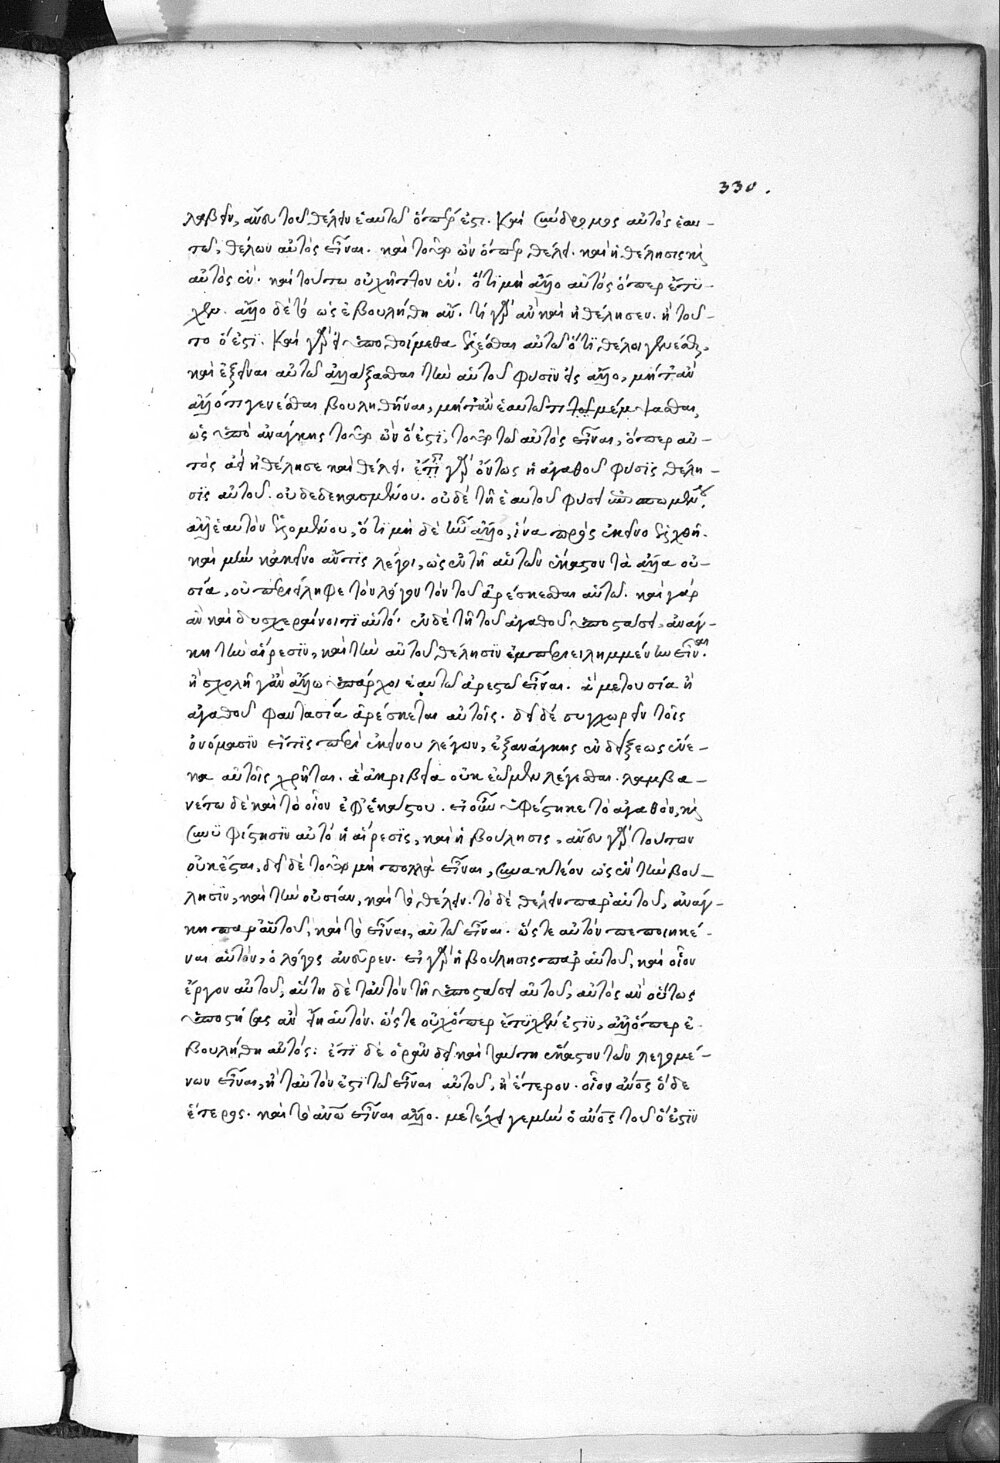 330.
λαβεῖν, ἄνευ τοῦ θέλειν ἑαυτῷ ὅπερ ἐστί. καὶ σύνδρομος αὐτὸς ἑαυ-
τῷ, θέλων αὐτὸς εἶναι. καὶ τοῦτο ὢν ὅπερ θέλει. καὶ ἡ θέλησις καὶ
αὐτὸς ἕν. καὶ τούτῳ οὐχ ἧττον ἕν. ὅτι μὴ ἄλλο αὐτὸς ὅσπερ ἔτυ-
χεν. ἄλλο δὲ τὸ ὡς ἐβουλήθη ἄν. τί γὰρ ἂν καὶ ἠθέλησεν. ἢ τοῦ-
το ὅ ἐστι. καὶ γὰρ εἰ ὑποθοίμεθα ἑλέσθαι αὐτῷ ὅ τι θέλοι γενέσθαι,
καὶ ἐξεῖναι αὐτῷ ἀλλάξασθαι τὴν αὑτοῦ φύσιν εἰς ἄλλο, μήτ' ἂν
ἄλλό τι γενέσθαι βουληθῆναι, μήτ' ἂν ἑαυτῷ τι μέμψασθαι,
ὡς ὑπὸ ἀνάγκης τοῦτο ὢν ὅ ἐστι, τοῦτο τὸ αὐτὸς εἶναι, ὅπερ αὐ-
τὸς ἀεὶ ἠθέλησε καὶ θέλει. ἔστι γὰρ ὄντως ἡ ἀγαθοῦ φύσις θέλη-
σις αὐτοῦ. οὐ δεδεκασμένου. οὐδὲ τῇ ἑαυτοῦ φύσει ἐπισπωμένου.
ἀλλ' ἑαυτὸν ἑλομένου, ὅτι μηδὲ ἦν ἄλλο, ἵνα πρὸς ἐκεῖνο ἑλχθῇ.
καὶ μὴν κἀκεῖνο ἄν τις λέγοι, ὡς ἐν τῇ αὑτῶν ἕκαστον τὰ ἄλλα οὐ-
σίᾳ, οὐ περιείληφε τὸν λόγον τὸν τοῦ ἀρέσκεσθαι αὑτῷ. καὶ γὰρ
ἂν καὶ δυσχεραίνοι τι αὑτό. ἐν δὲ τῇ τοῦ ἀγαθοῦ ὑποστάσει, ἀνάγ-
κη τὴν αἵρεσιν, καὶ τὴν αὐτοῦ θέλησιν ἐμπεριειλημμένην εἶναι.
ἢ σχολῇ γ' ἂν ἄλλῳ ὑπάρχοι ἑαυτῷ ἀρεστῷ εἶναι. ἃ μετουσίᾳ ἢ
ἀγαθοῦ φαντασίᾳ ἀρέσκεται αὑτοῖς. δεῖ δὲ συγχωρεῖν τοῖς
ὀνόμασιν εἴ τις περὶ ἐκείνου λέγων, ἐξ ἀνάγκης ἐνδείξεως ἕνε-
κα αὐτοῖς χρῆται. ἃ ἀκριβείᾳ οὐκ ἐῶμεν λέγεσθαι. λαμβα-
νέτω δὲ καὶ τὸ οἷον ἐφ' ἑκάστου. εἰ οὖν ὑφέστηκε τὸ ἀγαθὸν, καὶ
συνυφίστησιν αὐτὸ ἡ αἵρεσις, καὶ ἡ βούλησις, ἄνευ γὰρ τούτων
οὐκ ἔσται, δεῖ δὲ τοῦτο μὴ πολλὰ εἶναι, συνακτέον ὡς ἓν τὴν βού-
λησιν, καὶ τὴν οὐσίαν, καὶ τὸ θέλειν. τὸ δὲ θέλειν παρ' αὑτοῦ, ἀνάγ-
κη παρ' αὑτοῦ, καὶ τὸ εἶναι, αὐτῷ εἶναι. ὥστε αὐτὸν πεποιηκέ-
ναι αὑτὸν, ὁ λόγος ἀνεῦρεν. εἰ γὰρ ἡ βούλησις παρ' αὑτοῦ, καὶ οἷον
ἔργον αὐτοῦ, αὕτη δὲ ταὐτὸν τῇ ὑποστάσει αὐτοῦ, αὐτὸς ἂν οὕτως
ὑποστήσας ἂν εἴη αὑτόν. ὥστε οὐχ ὅπερ ἔτυχέν ἐστιν, ἀλλ' ὅπερ ἐ-
βουλήθη αὐτός: ἔτι δὲ ὁρᾶν δεῖ καὶ ταύτῃ ἕκαστον τῶν λεγομέ-
νων εἶναι, ἢ ταὐτόν ἐστι τῷ εἶναι αὐτοῦ, ἢ ἕτερον. οἷον ἄνθρωπος ὅδε
ἕτερος. καὶ τὸ ἀνθρώπῳ εἶναι ἄλλο. μετέχει γε μὴν ὁ ἄνθρωπος τοῦ ὅ ἐστιν